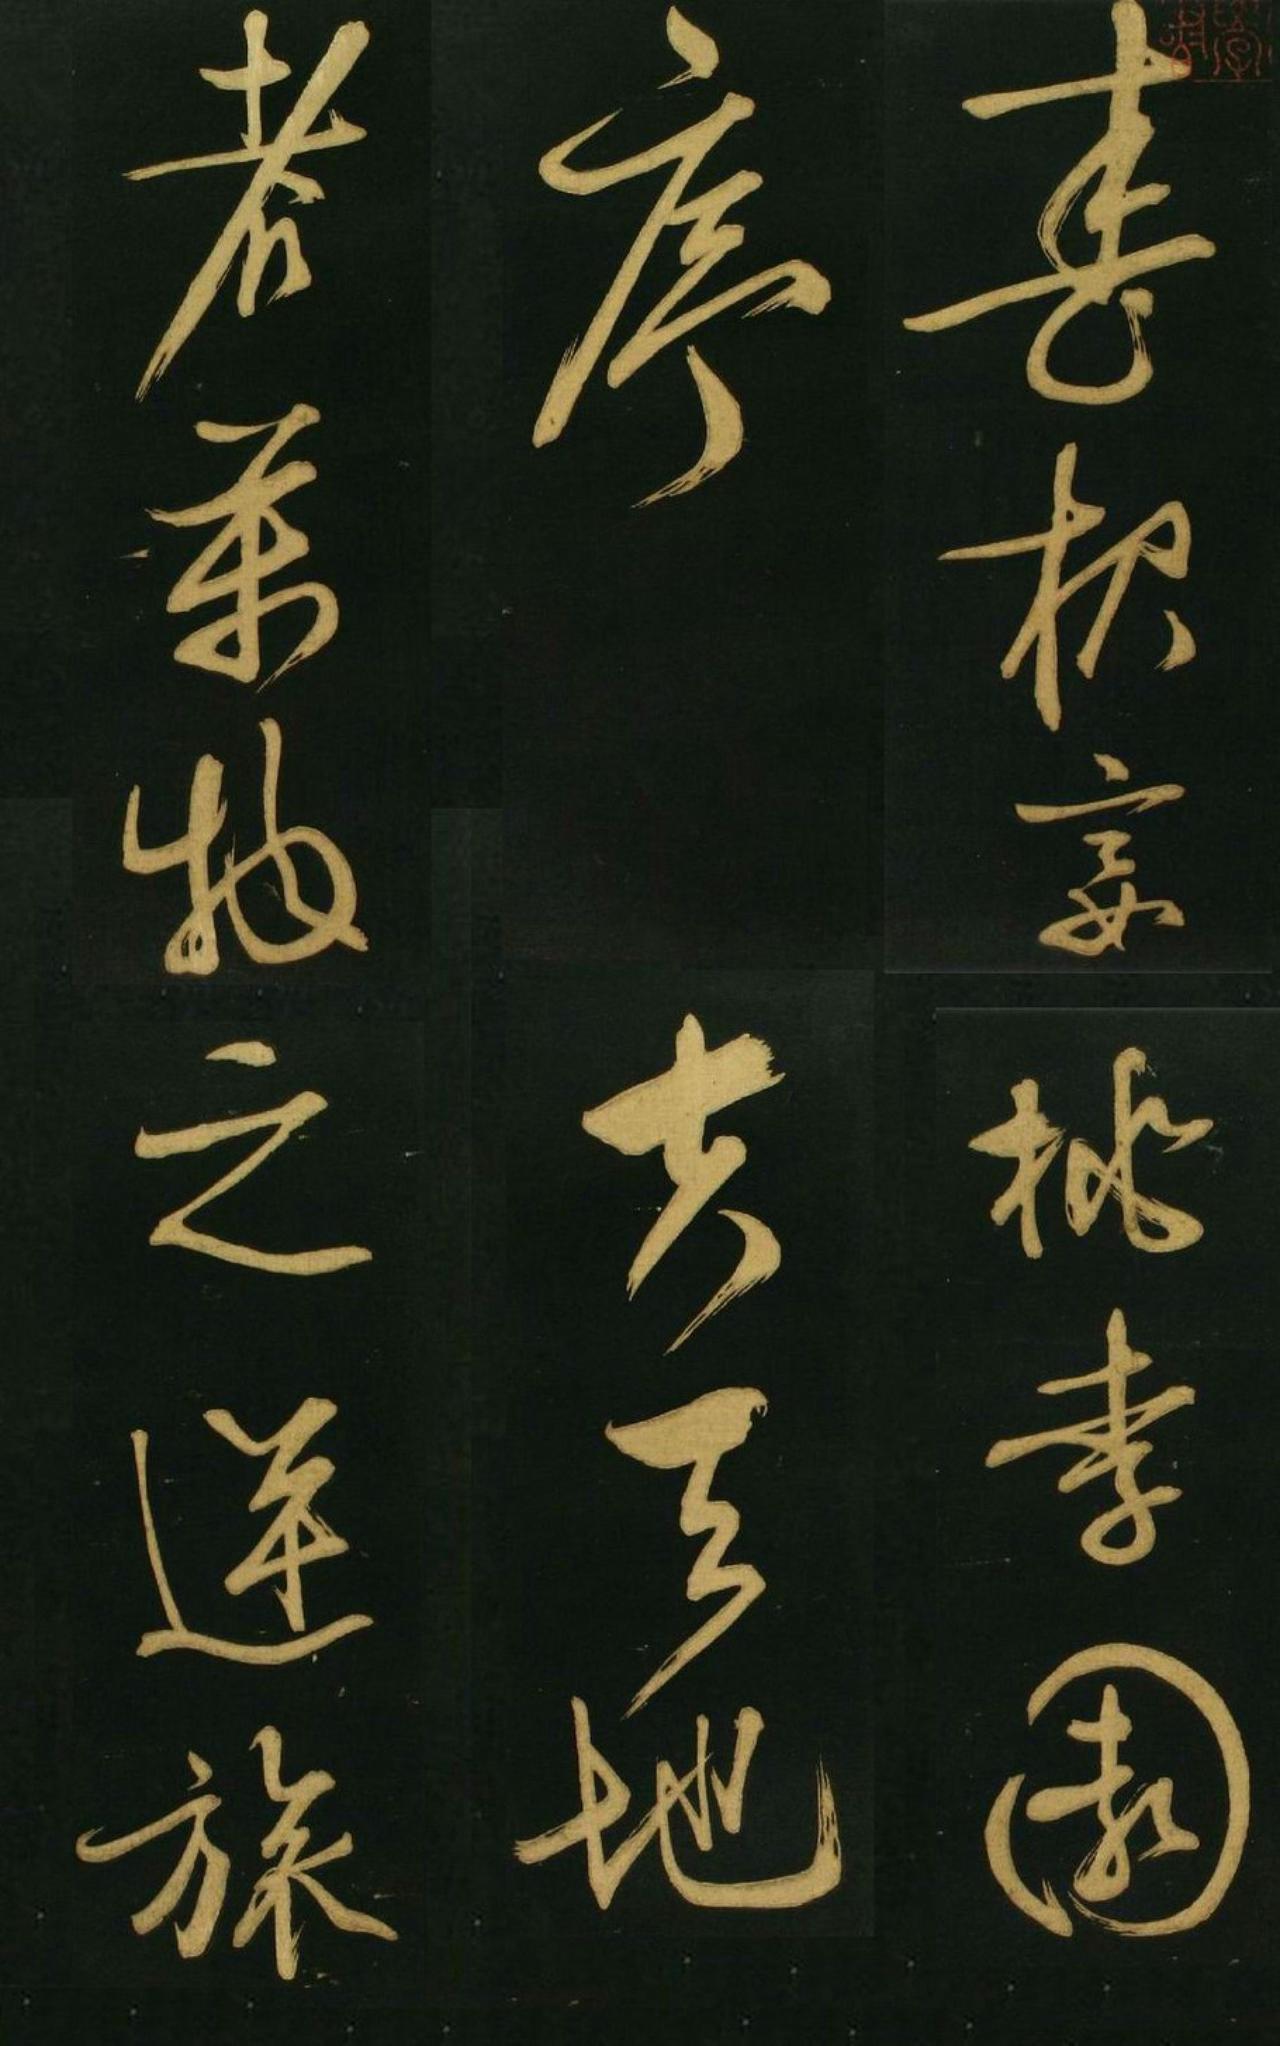 春夜宴桃李園
序夫天地
者萬物之逆旅